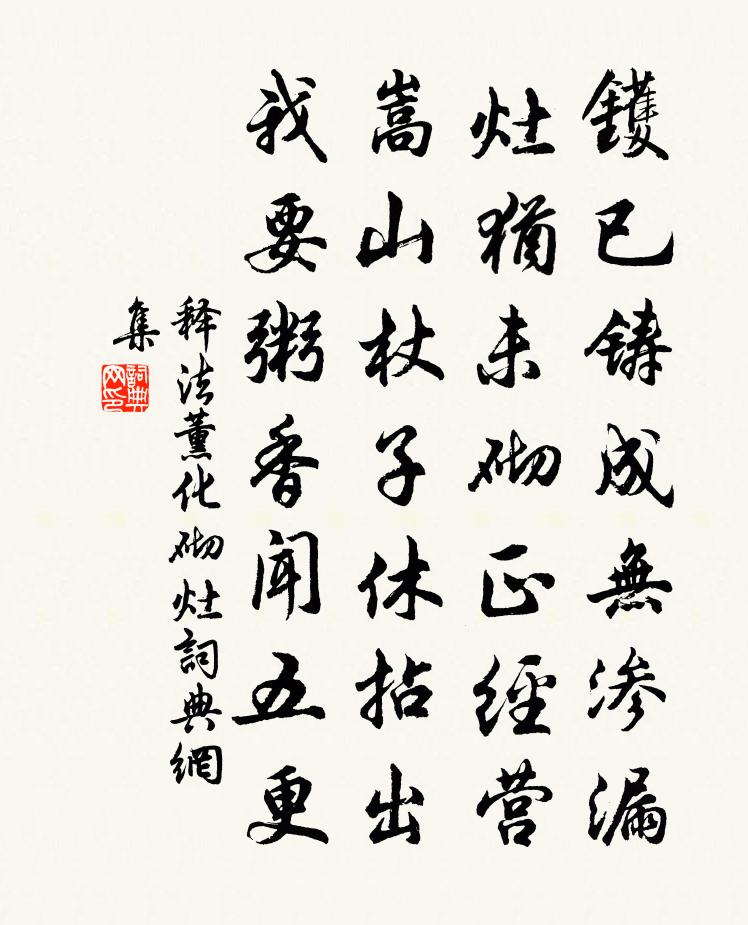 鑊已铸成無渗漏
灶猶未砌正經营
嵩山杖子休拈出
我要粥香聞五更
释法薰化砌灶詞典網
集
詞典
网印